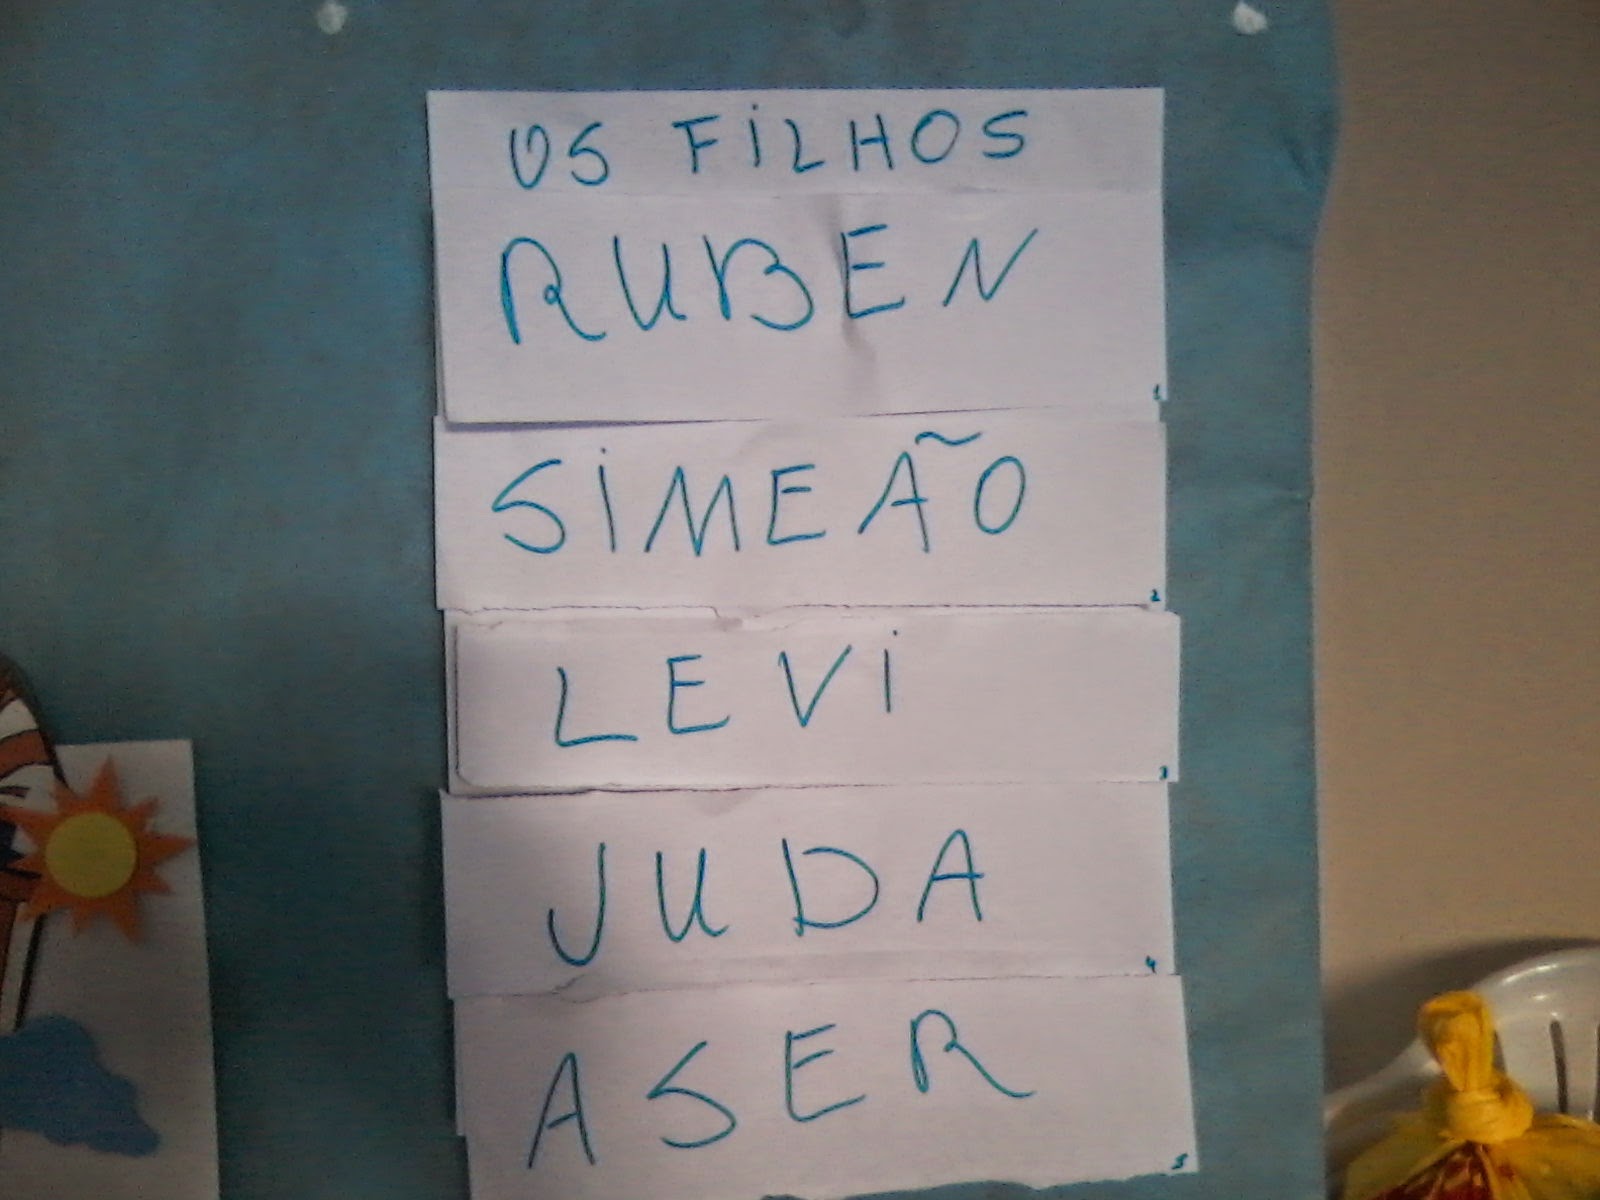 OS FILHOS
RUBEN
1
SIMEÃO
2
LEVI
3
JUDA
4
ASER
5